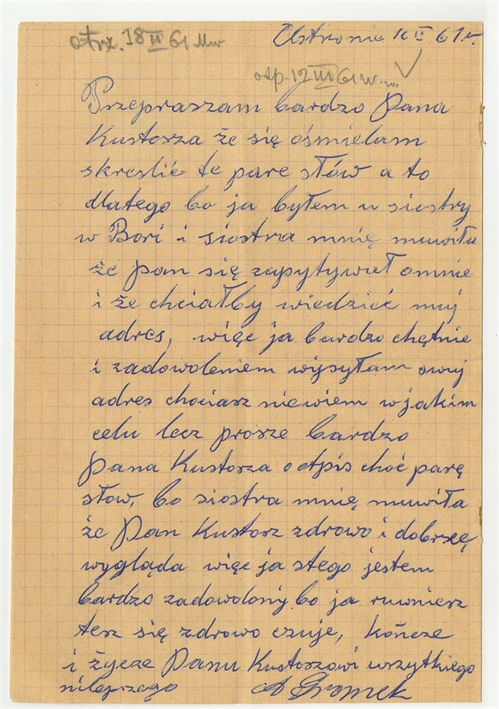 otrz. 18 II 61 Mw
Ustronie 16 II 61 r.
odp. 12 III 61 W...
Przepraszam bardzo Pana
Kustorza że się ośmielam
skreslić te pare słów a to
dlatego bo ja byłem u siostry
w Bori i siostra mnię muwiła
że pan się zapytywał omnie
i że chciałby wiedzieć muj
adres, więc ja bardzo chętnie
i zadowoleniem wysyłam swuj
adres chociasz niewiem wjakim
celu lecz prosze bardzo
Pana Kustorza o otpis choć parę
słow, bo siostra mnię muwiła
że Pan Kustorz zdrowo i dobrzę
wygląda więc ja stego jestem
bardzo zadowolony. bo ja ruwniesz
tesz się zdrowo czuje, kończe
i życze Panu Kustorzowi wszytkiego
nilepszego A Gromek